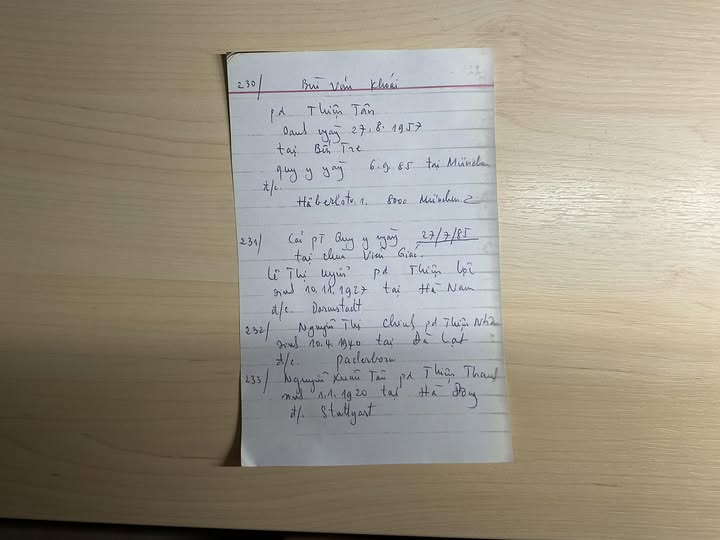 230/ Bùi Văn Khoái
pd Thiện Tấn
Sanh ngày 27.8.1957
tại Bến Tre
quy y ngày 6.9.85 tại München
đ/c.
Häberlstr. 1. 8000 München 2
231/ Các PT Quy y ngày 27/7/85
tại chùa Viên Giác.
Lê Thị pd Thiện Lợi
sinh 10.11.1927 tại Hà Nam
đ/c. Darmstadt
232/ Nguyễn Thị Chinh pd Thiện
sinh 10.4.1940 tại Đà Lạt
đ/c. Paderborn
233/ Nguyễn Xuân Tân pd Thiện Thanh
sinh 1.1.1920 tại Hà Đông
đ/c. Stuttgart